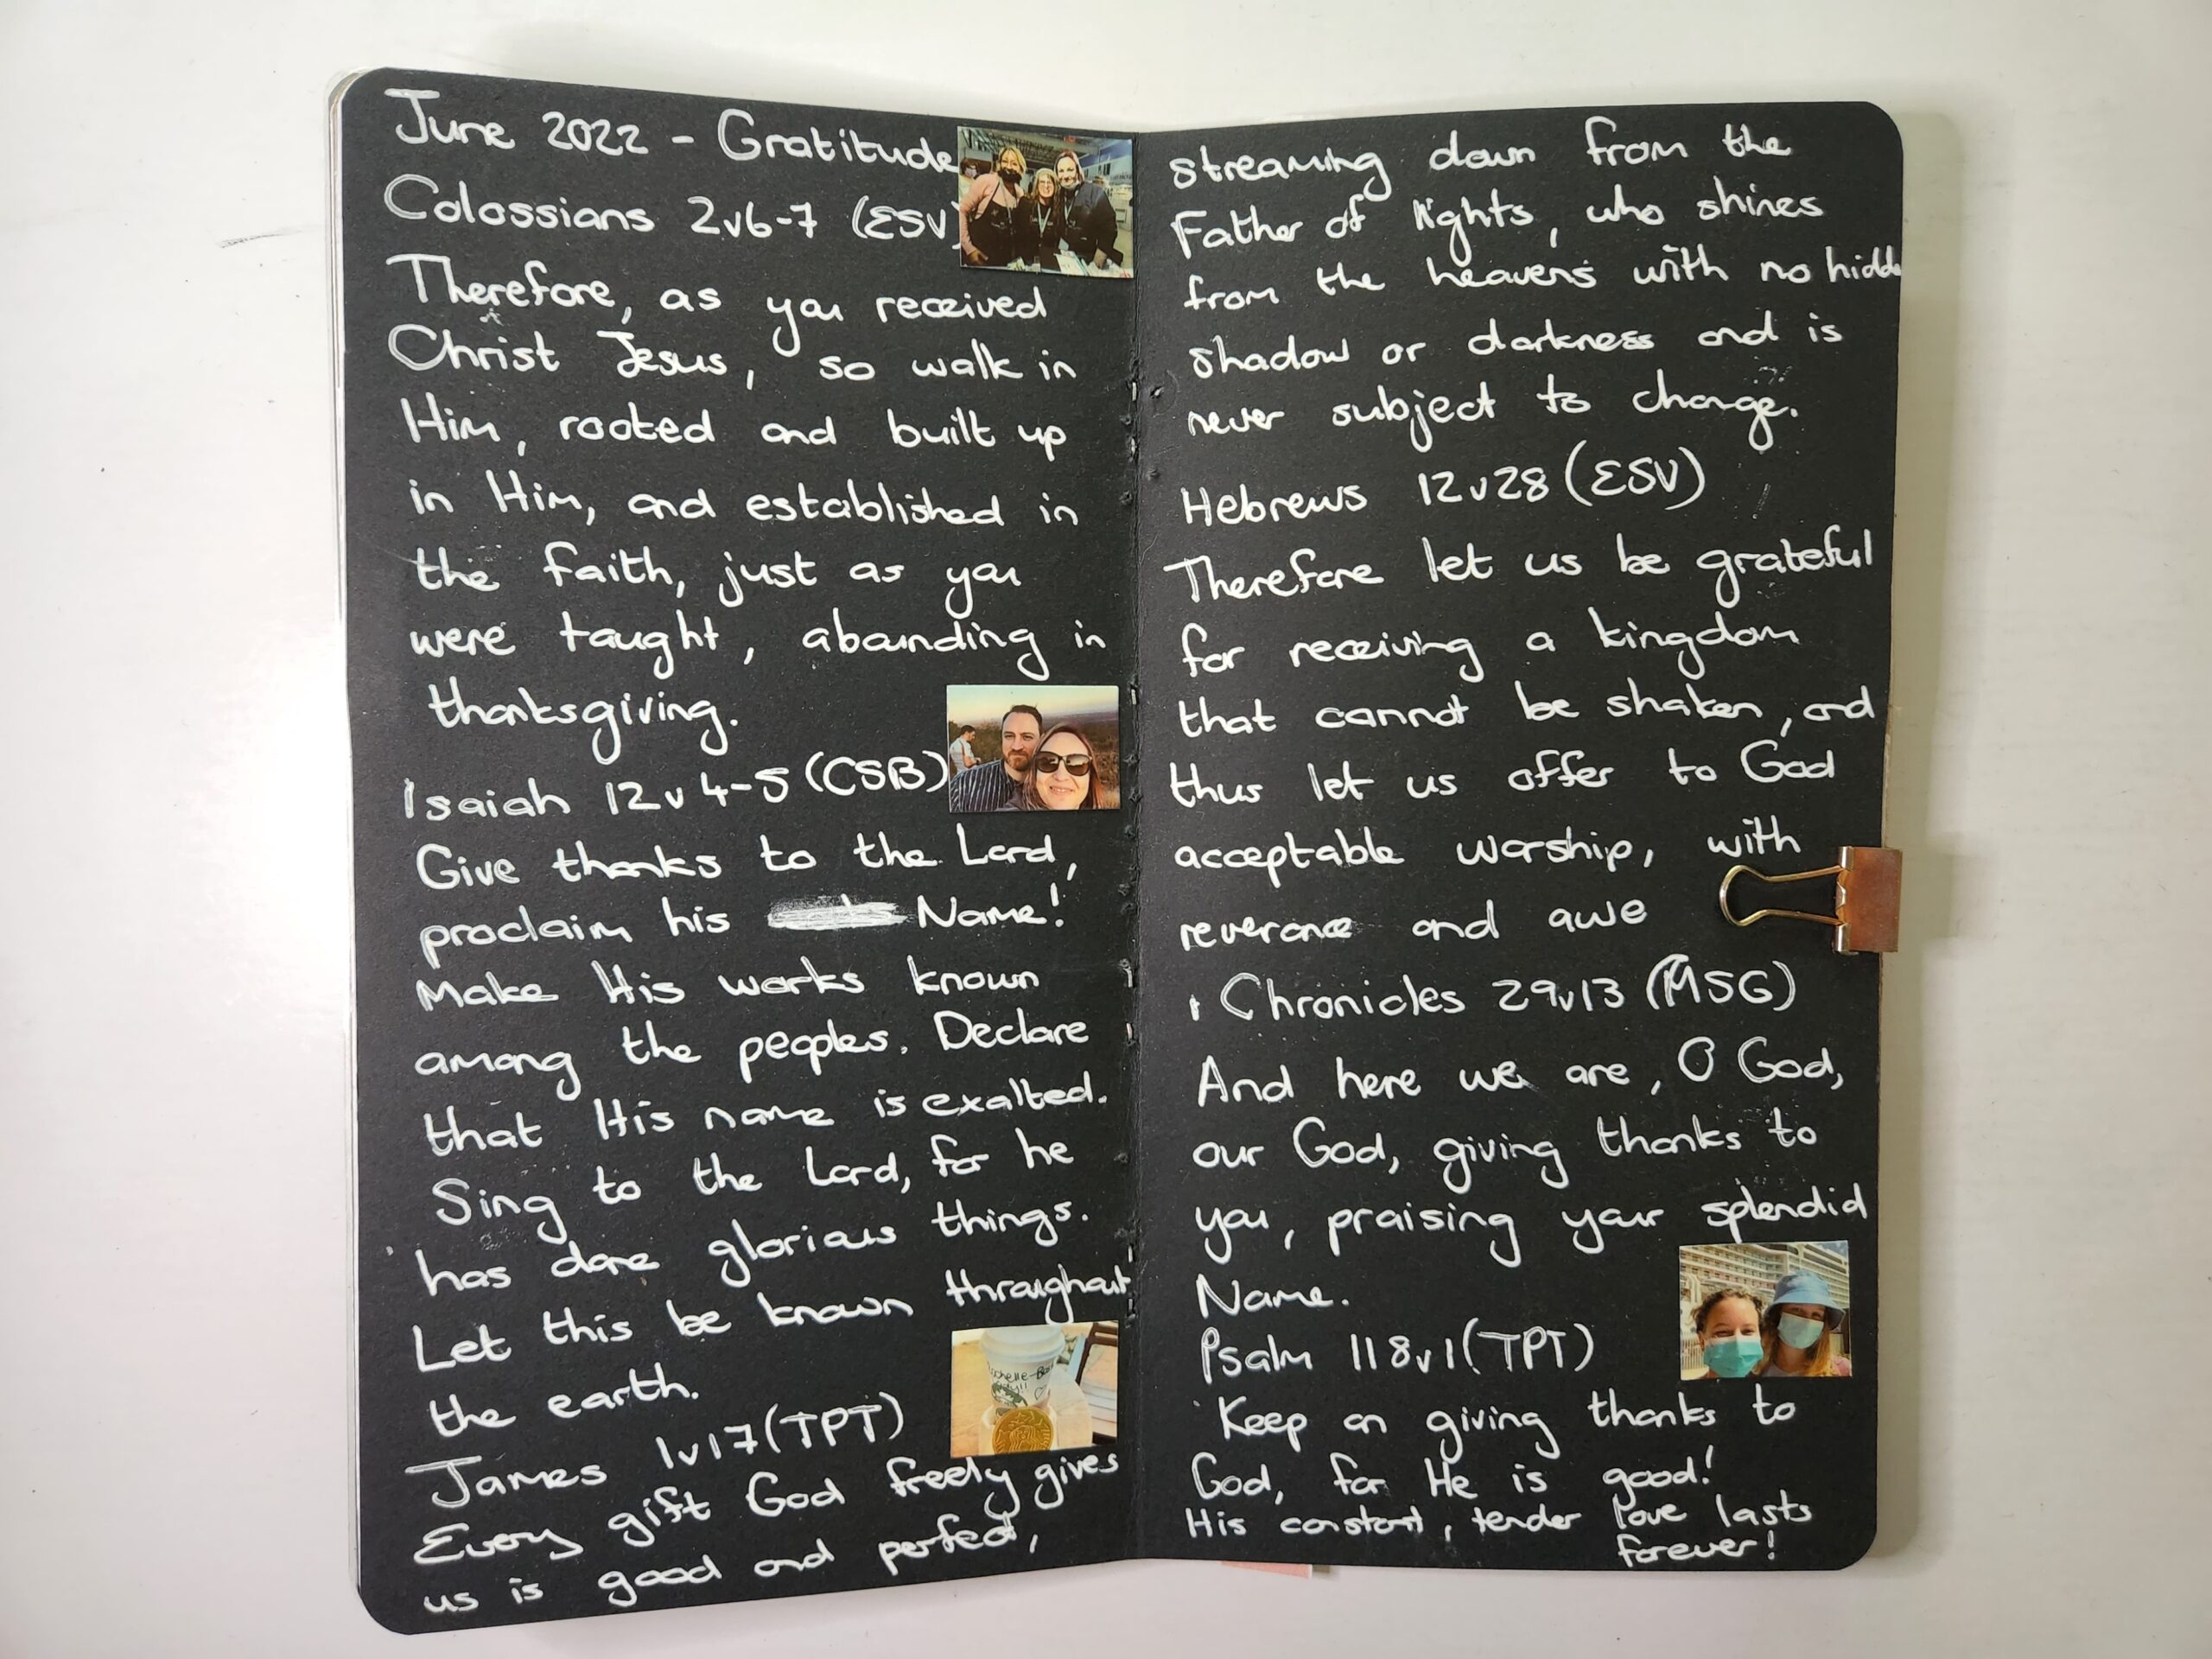 June 2022 - Gratitude
Colossians 2v6-7 (ESV)
Therefore, as you received
Christ Jesus, so walk in
Him, rooted and built up
in Him, and established in
the faith, just as you
were taught, abounding in
thanksgiving.
Isaiah 12v4-5 (CSB)
Give thanks to the Lord,
proclaim his Name!
Make His works known
among the peoples. Declare
that His name is exalted.
Sing to the Lord, for he
has done glorious things.
Let this be known throughout
the earth.
James 1v17 (TPT)
Every gift God freely gives
us is good and perfect,
streaming down from the
Father of lights, who shines
from the heavens with no hidde
shadow or darkness and is
never subject to change.
Hebrews 12v28 (ESV)
Therefore let us be grateful
for receiving a kingdom
that cannot be shaken, and
thus let us offer to God
acceptable worship, with
reverance and awe
1 Chronicles 29v13 (MSG)
And here we are, O God,
our God, giving thanks to
you, praising your splendid
Name.
Psalm 118v1 (TPT)
Keep on giving thanks to
God, for He is good!
His constant, tender love lasts
forever!